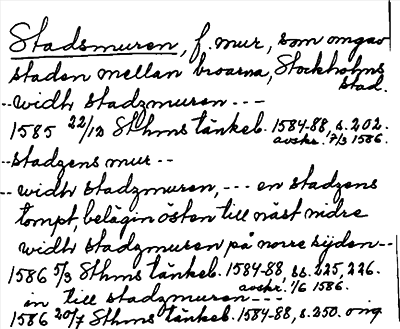 Stadsmuren, f. mur, som omgav
staden mellan broarna, Stockholms
stad.
--widh stadzmuren ---
1585 22/12 Sthms tänkeb. 1584-88, s. 202.
avskr. 7/3 1586.
--stadzens mur--
--widh stadzmuren, --- en stadzens
tompt, belägin östen till näst nidre
widh stadzmuren på norre sijden--
1586 5/3 Sthms tänkeb. 1584-88, ss. 225, 226.
avskr. 1/6 1586.
in till stadzmuren---
1586 20/7 Sthms tänkeb. 1584-88, s. 250. orig